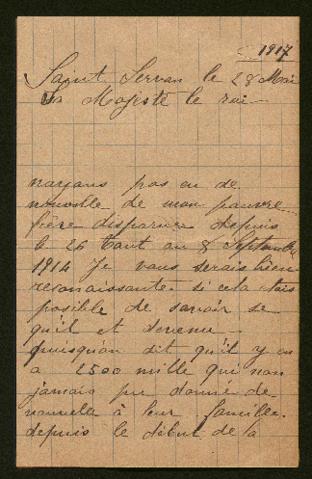 1917
Saint Servan le 28 Mai
Sa Majesté le roi
nayans pas eu de
nouvelle de mon pauvre
frère disparue depuis
le 26 Aout au 8 Septembre
1914 Je vous serais bien
reconaissante si cela étais
posible de savoir se
qu'il et devenu
puisqu'on dit qu'il y en
a 2500 mille qui non
jamais pu donné de
nouvelle à leur famille.
depuis le début de la